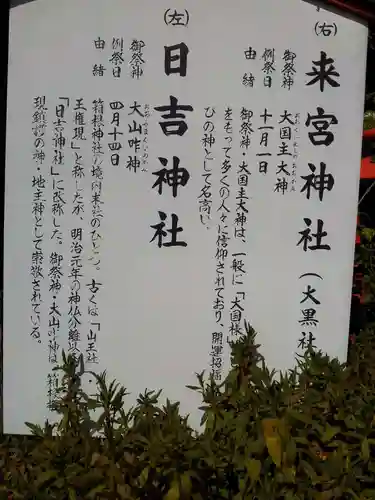 (右)
来宮神社(大黒社
御祭神 大国主大神
おおくにぬしのおおかみ
例祭日 十一月一日
由緒 御祭神・大国主大神は、一般に「大国様
をもって多くの人々に信仰されており、開運招福
びの神として名高い。
(左)
日吉神社
御祭神 大山咋神
おおやまくいのかみ
例祭日 四月十四日
由緒 箱根神社の境内末社のひとつ。古くは「山王社
王権現」と称したが、明治元年の神仏分離
「日吉神社」に改称した。御祭神・大山咋神は、箱根
現鎮護の神・地主神として崇敬されている。